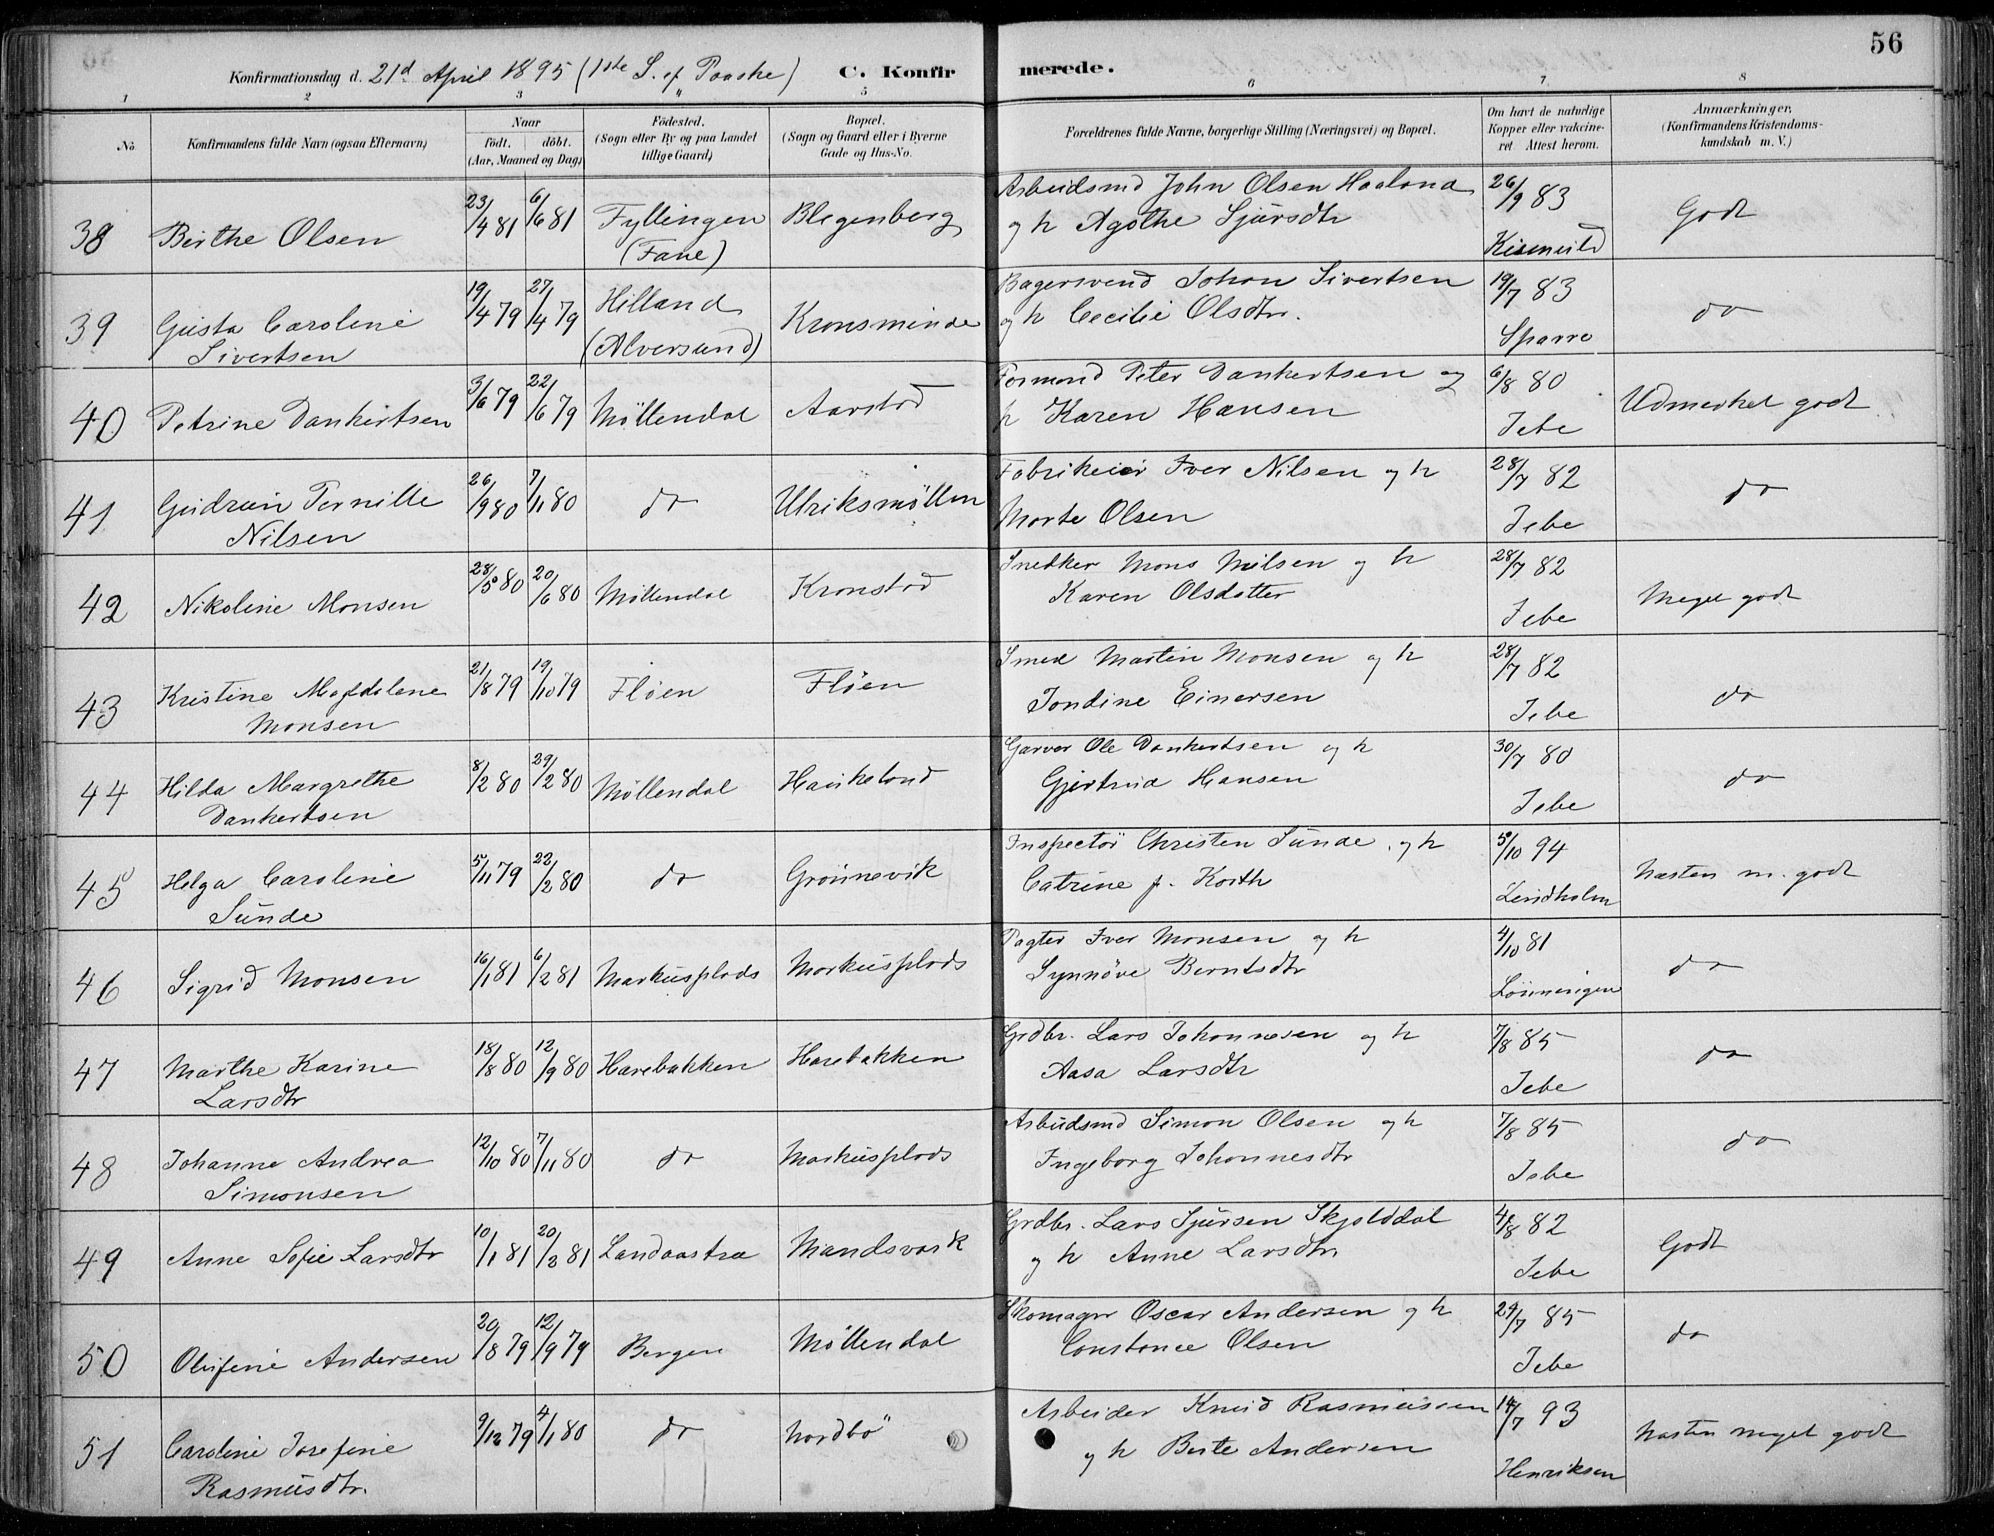 56
Konfirmationsdag d. 21d April 1895 (1ste S. ef Paaske) C. Konfirmerede.
1 2 3 5 6 7 8
No Konfirmandens fulde Navn (ogsaa Efternavn) Naar födt. döbt. (Aar, Maaned og Dag) Födested. (Sogn eller By og paa Landet tillige Gaard) Bopæl. (Sogn og Gaard eller i Byerne Gade og Hus-No. Forældrenes fulde Navne, borgerlige Stilling (Næringsvei) og Bopæl. Om havt de naturlige Kopper eller vakcineret Attest herom. Anmærkninger. (Konfirmandens Kristendomskundskab m. V.)
38 Birthe Olsen 23/4 81 6/6 81 Fyllingen (Fane) Blegenberg Arbeidsmd John Olsen Haaland og h Agathe Sjursdtr 26/9 83 Godt
39 Gusta Caroline Sivertsen 19/4 79 27/4 79 Hilland (Alversund) Kronsminde Bagersvend Johan Sivertsen og h Cecilie Olsdtr. 19/7 83 Sparre do
40 Petrine Dankertsen 3/6 79 22/6 79 Möllendal Aarstad Formand Peter Dankertsen og h Karen Hansen 6/8 80 Jebe Udmerket godt
41 Gudrun Pernille Nilsen 26/9 80 7/11 80 do Ulriksmöllen Fabrikeier Iver Nilsen og h Marte Olsen 28/7 82 Jebe do
42 Nikoline Monsen 28/5 80 20/6 80 Möllendal Kronstad Snedker Mons Nilsen og h Karen Olsdatter 28/7 82 Jebe Meget godt
43 Kristine Magdalene Monsen 21/8 79 19/10 79 Flöen Flöen Smed Martin Monsen og h Jondine Einarsen 28/7 82 Jebe do
44 Hilda Margrethe Dankertsen 8/2 80 29/2 80 Möllendal Haukeland Garver Ole Dankertsen og h Gjertrud Hansen 30/7 80 Jebe do
45 Helga Caroline Sunde 5/11 79 22/2 80 do Grönnevik Inspectör Christen Sunde og h Catrine f. Korth 5/10 94 Lindholm Næsten m. godt
46 Sigrid Monsen 16/1 81 6/2 81 Markusplads Markusplads Pagter Iver Monsen og h Synnöve Berntsdtr 4/10 81 Lönningen do
47 Marthe Karine Larsdtr 18/8 80 12/9 80 Harebakken Harebakken Grdbr. Lars Johannesen og h Aasa Larsdtr 7/8 85 Jebe do
48 Johanne Andrea Simonsen 12/10 80 7/11 80 do Markusplads Arbeidsmd Simon Olsen og h Ingeborg Johannesdtr 7/8 85 Jebe do
49 Anne Sofie Larsdtr 10/1 81 20/2 81 Landaastræ Mandsvark Grdbr. Lars Sjursen Skjolddal og h Anne Larsdtr 4/8 82 Jebe Godt
50 Olufine Andersen 20/8 79 12/9 79 Bergen Möllendal Skomager Oscar Andersen og h Constance Olsen 29/7 85 Jebe do
51 Caroline Josefine Rasmusdtr. 9/12 79 4/1 80 do Nordbö Arbeider Knud Rasmussen og h Berte Andersen 14/7 93 Henriksen Næsten meget godt